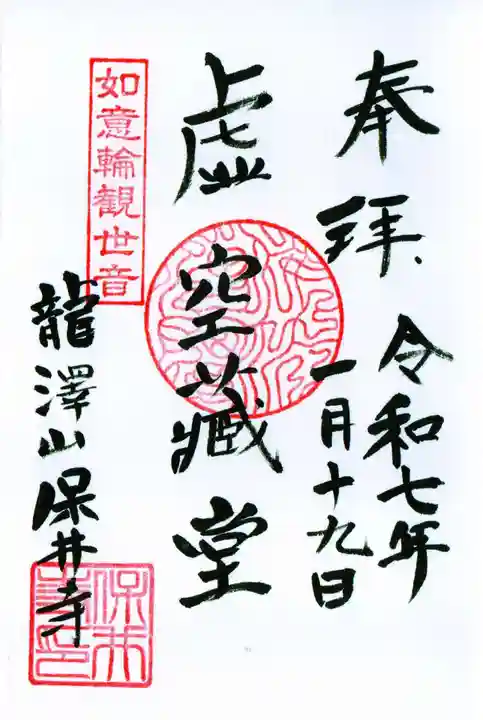 奉拝
令和七年
一月十九日
虚空藏堂
如意輪観世音
龍澤山保井寺